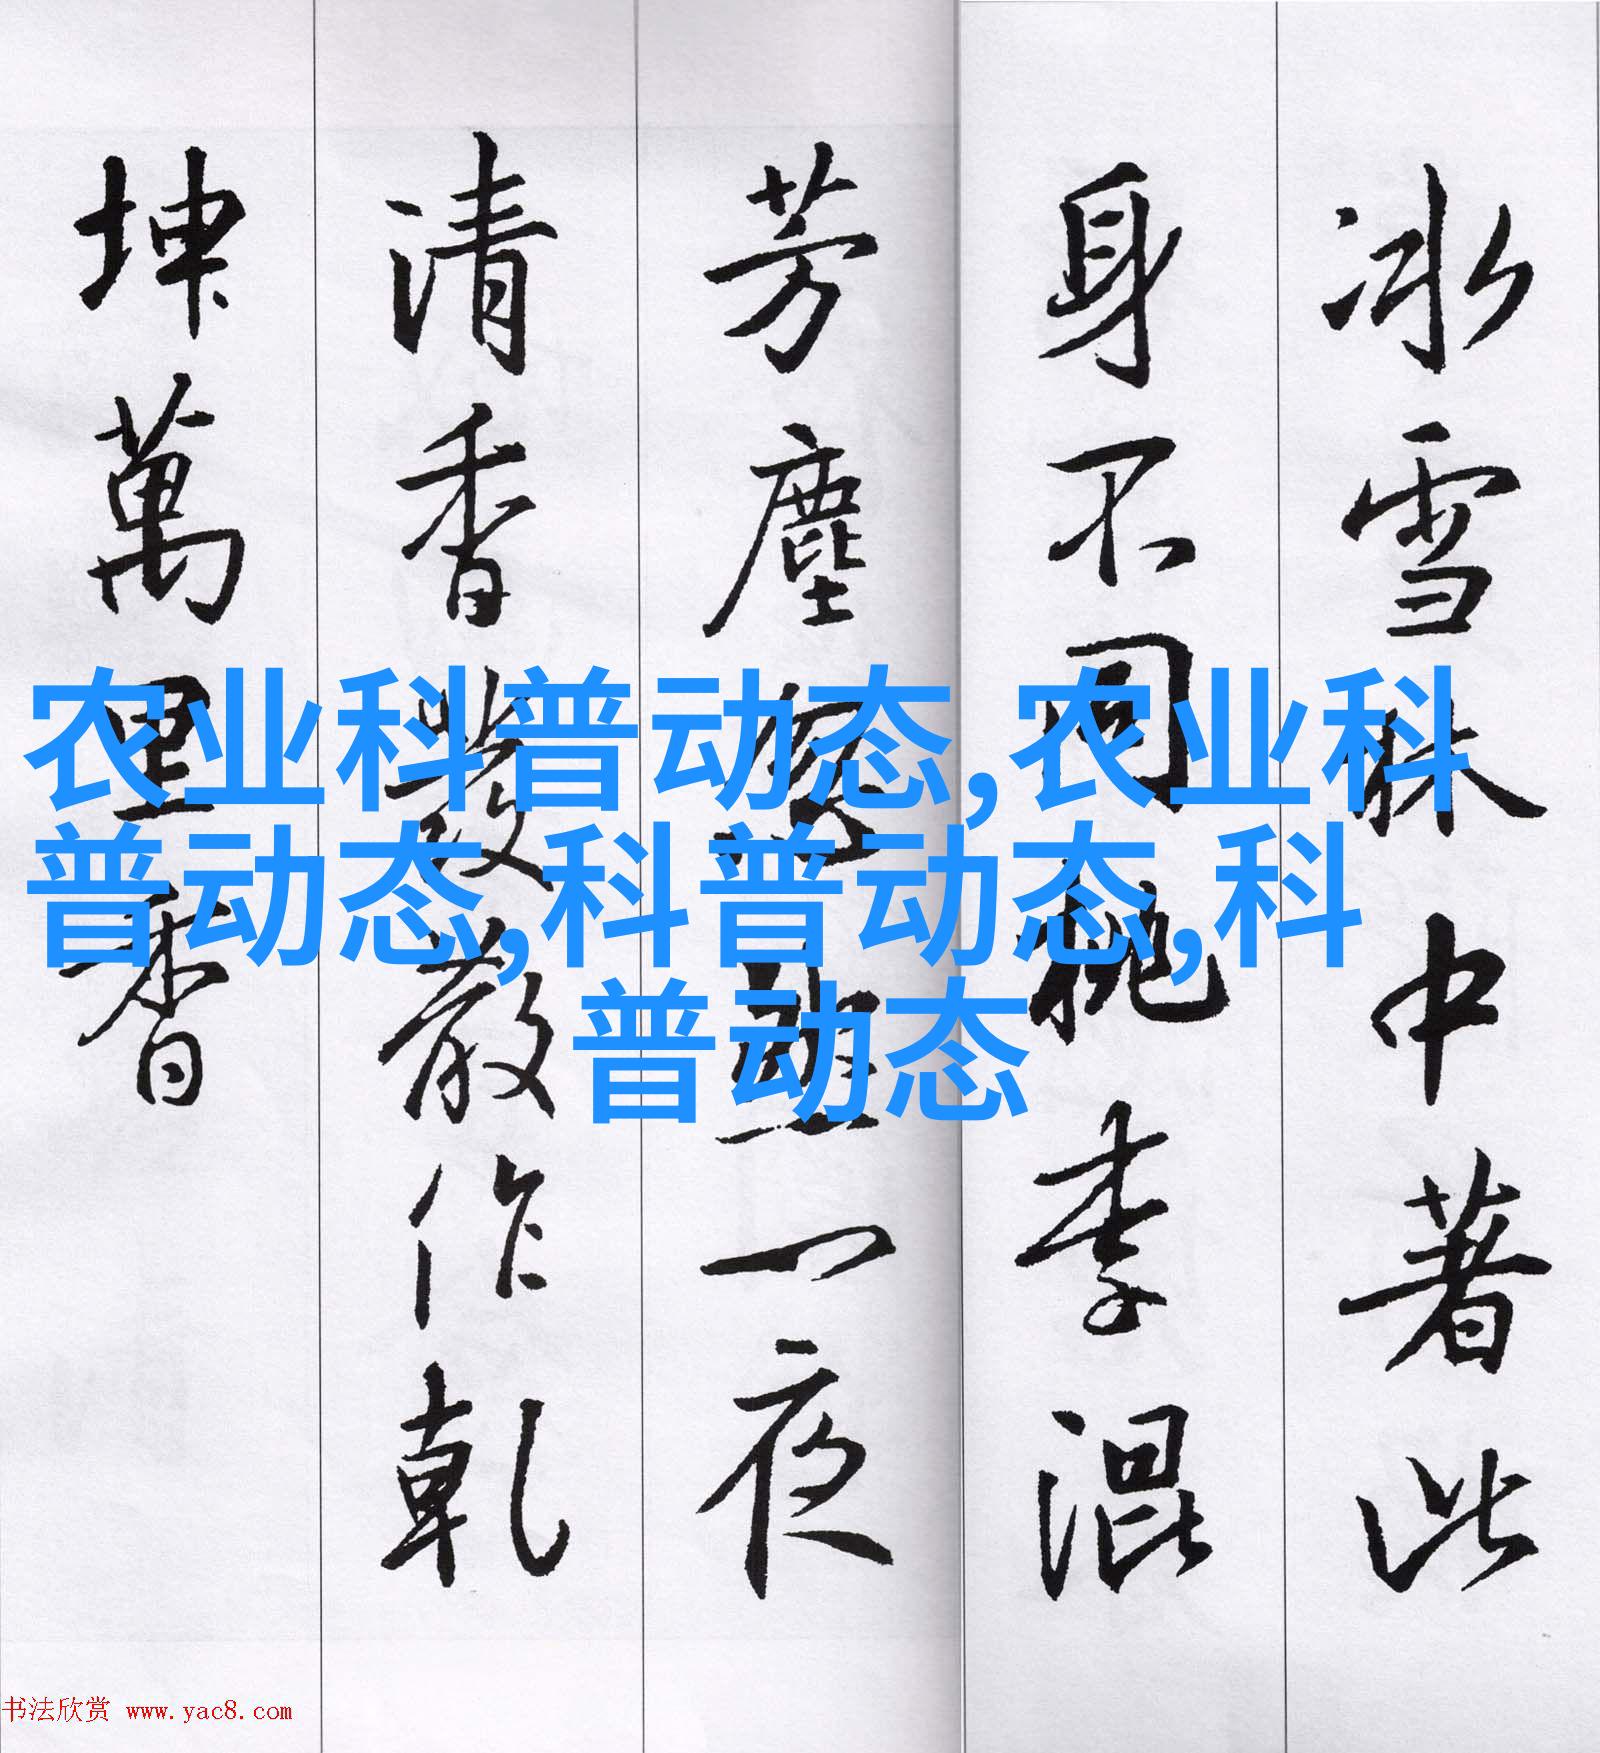 冰雪林中著此
身不同桃李混
芳塵忽然一夜
清香發散作乾
坤萬里香
农业科普动态,农业科
普动态,科普动态,科
普动态
书法欣赏 www.yac8.com